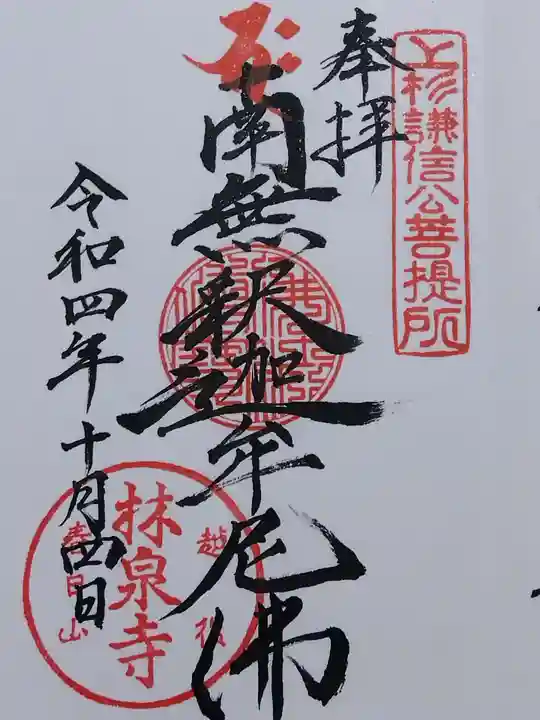 上杉謙信公菩提所
奉拝
南無釈迦牟尼佛
令和四年十月四日
越後
林泉寺
春日山